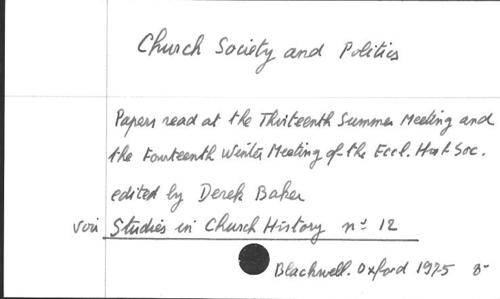 Church Society and Politics
Papers read at the Thirteenth Summer Meeting and
the Fourteenth Winter Meeting of the Eccl. Hist. Soc.
edited by Derek Baker
voir Studies in Church History nº 12
Blackwell. Oxford 1975 8º